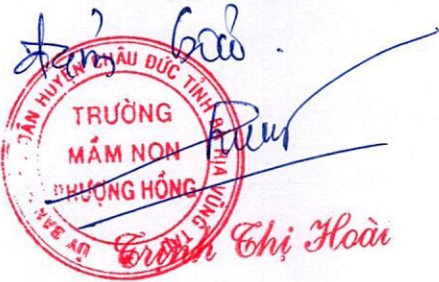 ỦY BAN NHÂN DÂN HUYỆN CHÂU ĐỨC TỈNH BÀ RỊA VŨNG TÀU
TRƯỜNG
MẦM NON
PHƯỢNG HỒNG
Trịnh Thị Hoài